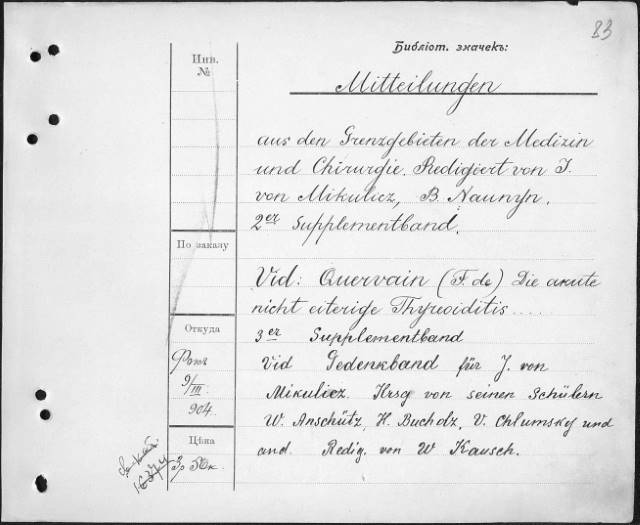 83
Библіот. значекъ:
Инв.
№
Mitteilungen
aus den Grenzgebieten der Medizin
und Chirurgie. Redigiert von J.
von Mikulicz, B. Naunyn.
2er Supplementband.
По заказу
Vid: Quervain (F. de) Die acute
nicht eiterige Thyreoiditis.....
3er Supplementband
Откуда
Vid Gedenkband für J. von
Mikulicz. Hrsg von seinen Schülern
W. Anschütz, H. Bucholz, V. Chlumsky und
and. Redig. von W Kausch.
9/III
904.
Цѣна
3р 50к.